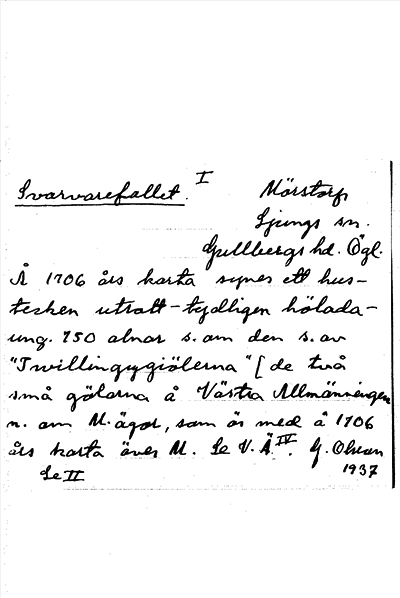 Svarvarefallet. I Mörstorp
Ljungs sn.
Gullbergs hd. Ögl.
Å 1706 års karta synes ett hus-
tecken utsatt - tydligen hölada -
ung. 750 alnar s. om den s. av
"Twillingygiölerna" [de två
små gölarna å Västra Allmänningen
n. om M. ägor, som är med å 1706
års karta över M. Se V. Ä IV. G. Olson
Se II 1937